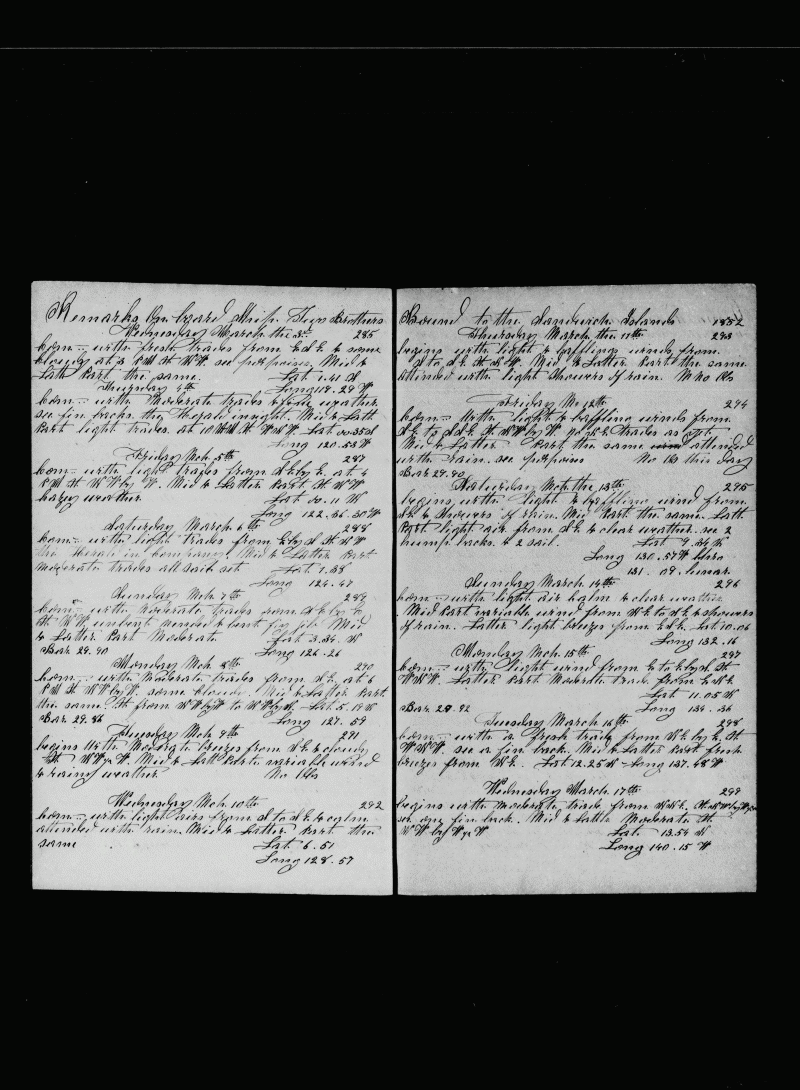 Remarks On board Ship Two Brothers
Wednesday March the 3rd 285
Com= with fresh trades from E S E & some
cloudy at 3 PM St W W. see porpoises. Mid &
Latt Part the same. Lat 1.41 S
Thursday 4th Long 118.29 W
Com= with Moderate trades & fine weather
see fin backs. the Herald in sight. Mid & Latt
Part light trades. at 10 Lat 00.35 S
Long 120.53 W
Friday Mch 5th 287
Com= with light trades from S E by E. at 4
PM St W by Mid & Latter Part St W W
hazy weather Lat 00.11 N
Long 122.36.30 W
Saturday March 6th 288
Com= with light trades from E by S St N W
the Herald in Company. Mid & Latter Part
Moderate trades all sail set Lat 1.38
Long 124.47
Sunday Mch 7th 289
Com= with moderate trades from S E by E
St W W unbent mended & bent fly jib Mid
& Latter Part Moderate Lat 3.34 N
Bar 29.90 Long 126.26
Monday Mch 8th 290
Com= with Moderate trades from S E at 6
PM St N W by W. some cloudy. Mid & Latter Part
the same. St from N W by W to N W by N Lat 5.19 N
Bar. 29.86 Long 127.59
Tuesday Mch 9th 291
begins with Moderate breezes from S E & cloudy
St Mid & Latt Part variable wind
& rainy weather No Obs
Wednesday Mch 10th 292
Com= with light airs from S to S E & calm
attended with rain. Mid & Latter Part the
same Lat 6.51
Long 128.57
Bound to the Sandwich Islands 1852
Thursday March the 11th 293
begins with light & baffling winds from
S to S E St N W. Mid & Latter Part the same
attended with light showers of rain. No Obs
Friday Mc 12th 294
Com= With light & baffling winds from
S E to S S E St W by W. no N E trades as yet
Mid & Latter Part the same attended
with rain. see porpoises No Obs this day
Bar 29.90
Saturday Mch the 13th 295
begins with light & baffling wind from
S E & showers of rain. Mid Part the same. Latt
Part light air from S E & clear weather. see 2
hump backs. & 2 sail. Lat 9.34 N
Long 130.57 W Chro
131.09. lunar
Sunday March 14th 296
Com= with light air calm & clear weather
Mid Part variable wind from N E to S E & showers
of rain. Latter light breeze from E S E. Lat 10.06
Long 132.16
Monday Mch 15th 297
Com= with light wind from E to E by S St
W N W. Latter Part Moderate trade from E N E
Lat 11.05 N
Bar 29.92 Long 134.36
Tuesday March 16th 298
Com= with a fresh trade from N E by E St
W N W. see a fin back. Mid & Latter Part fresh
breezes from N E. Lat 12.25 N Long 137.48 W
Wednesday March 17th 299
begins with Moderate trade from N N E.
see one fin back. Mid & Latter Moderate St
Lat 13.54 N
Long 140.15 W